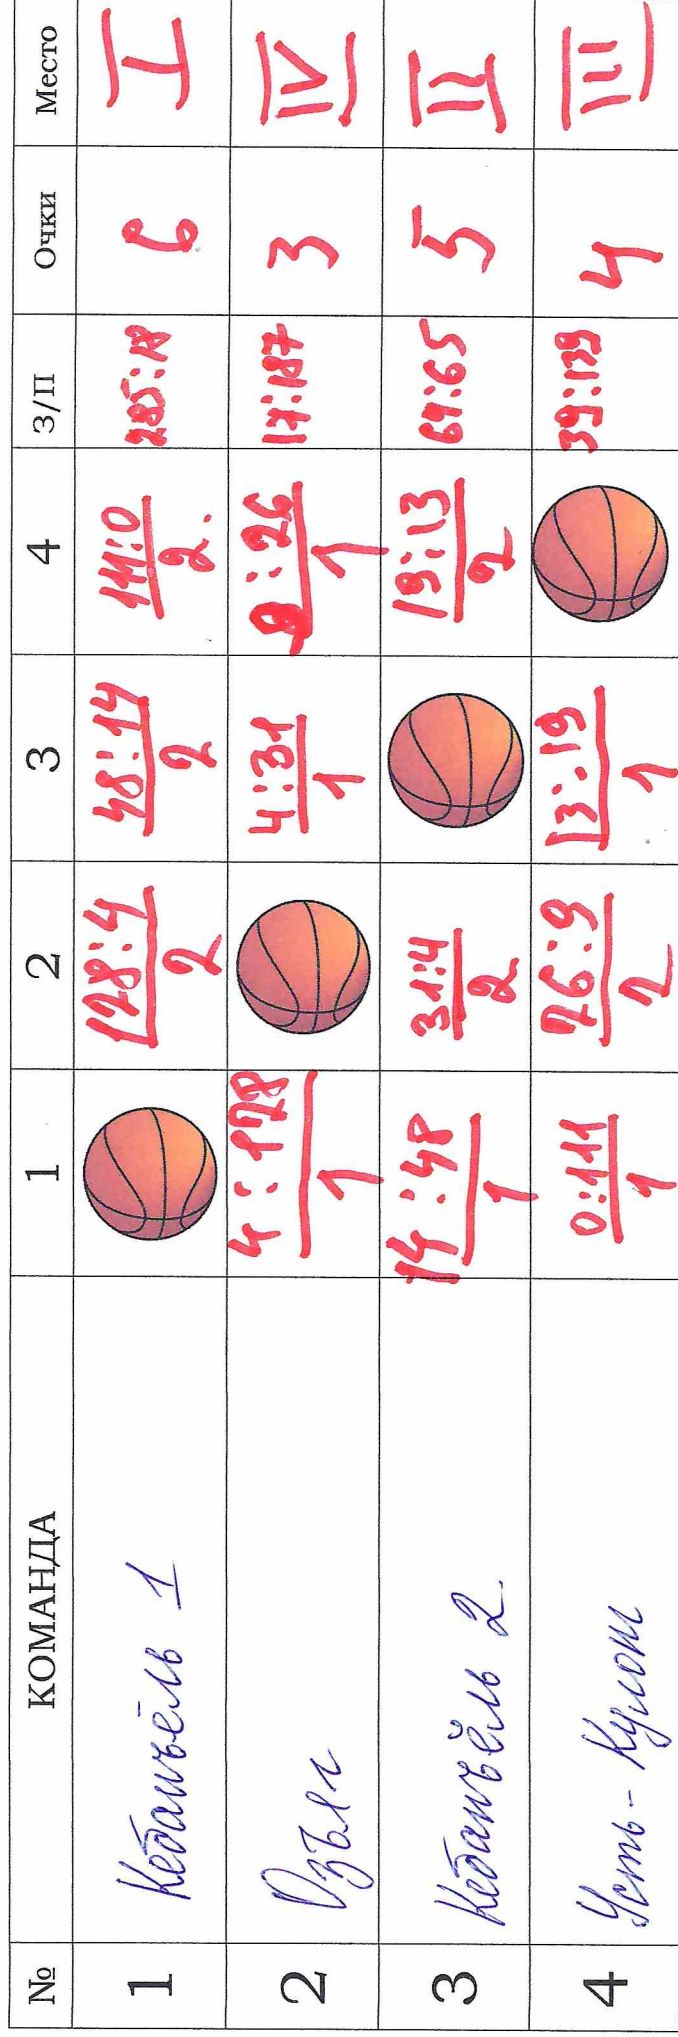 № КОМАНДА 1 2 3 4 З/П Очки Место
1 Кебанъёль 1 128:4 2 48:14 2 111:0 2. 285:18 6 I
2 Дзёль 4:128 1 4:31 1 9:26 1 17:187 3 IV
3 Кебанъёль 2 14:48 1 31:4 2 19:13 2 64:65 5 II
4 Усть-Кулом 0:111 1 26:9 2 13:19 1 39:139 4 III